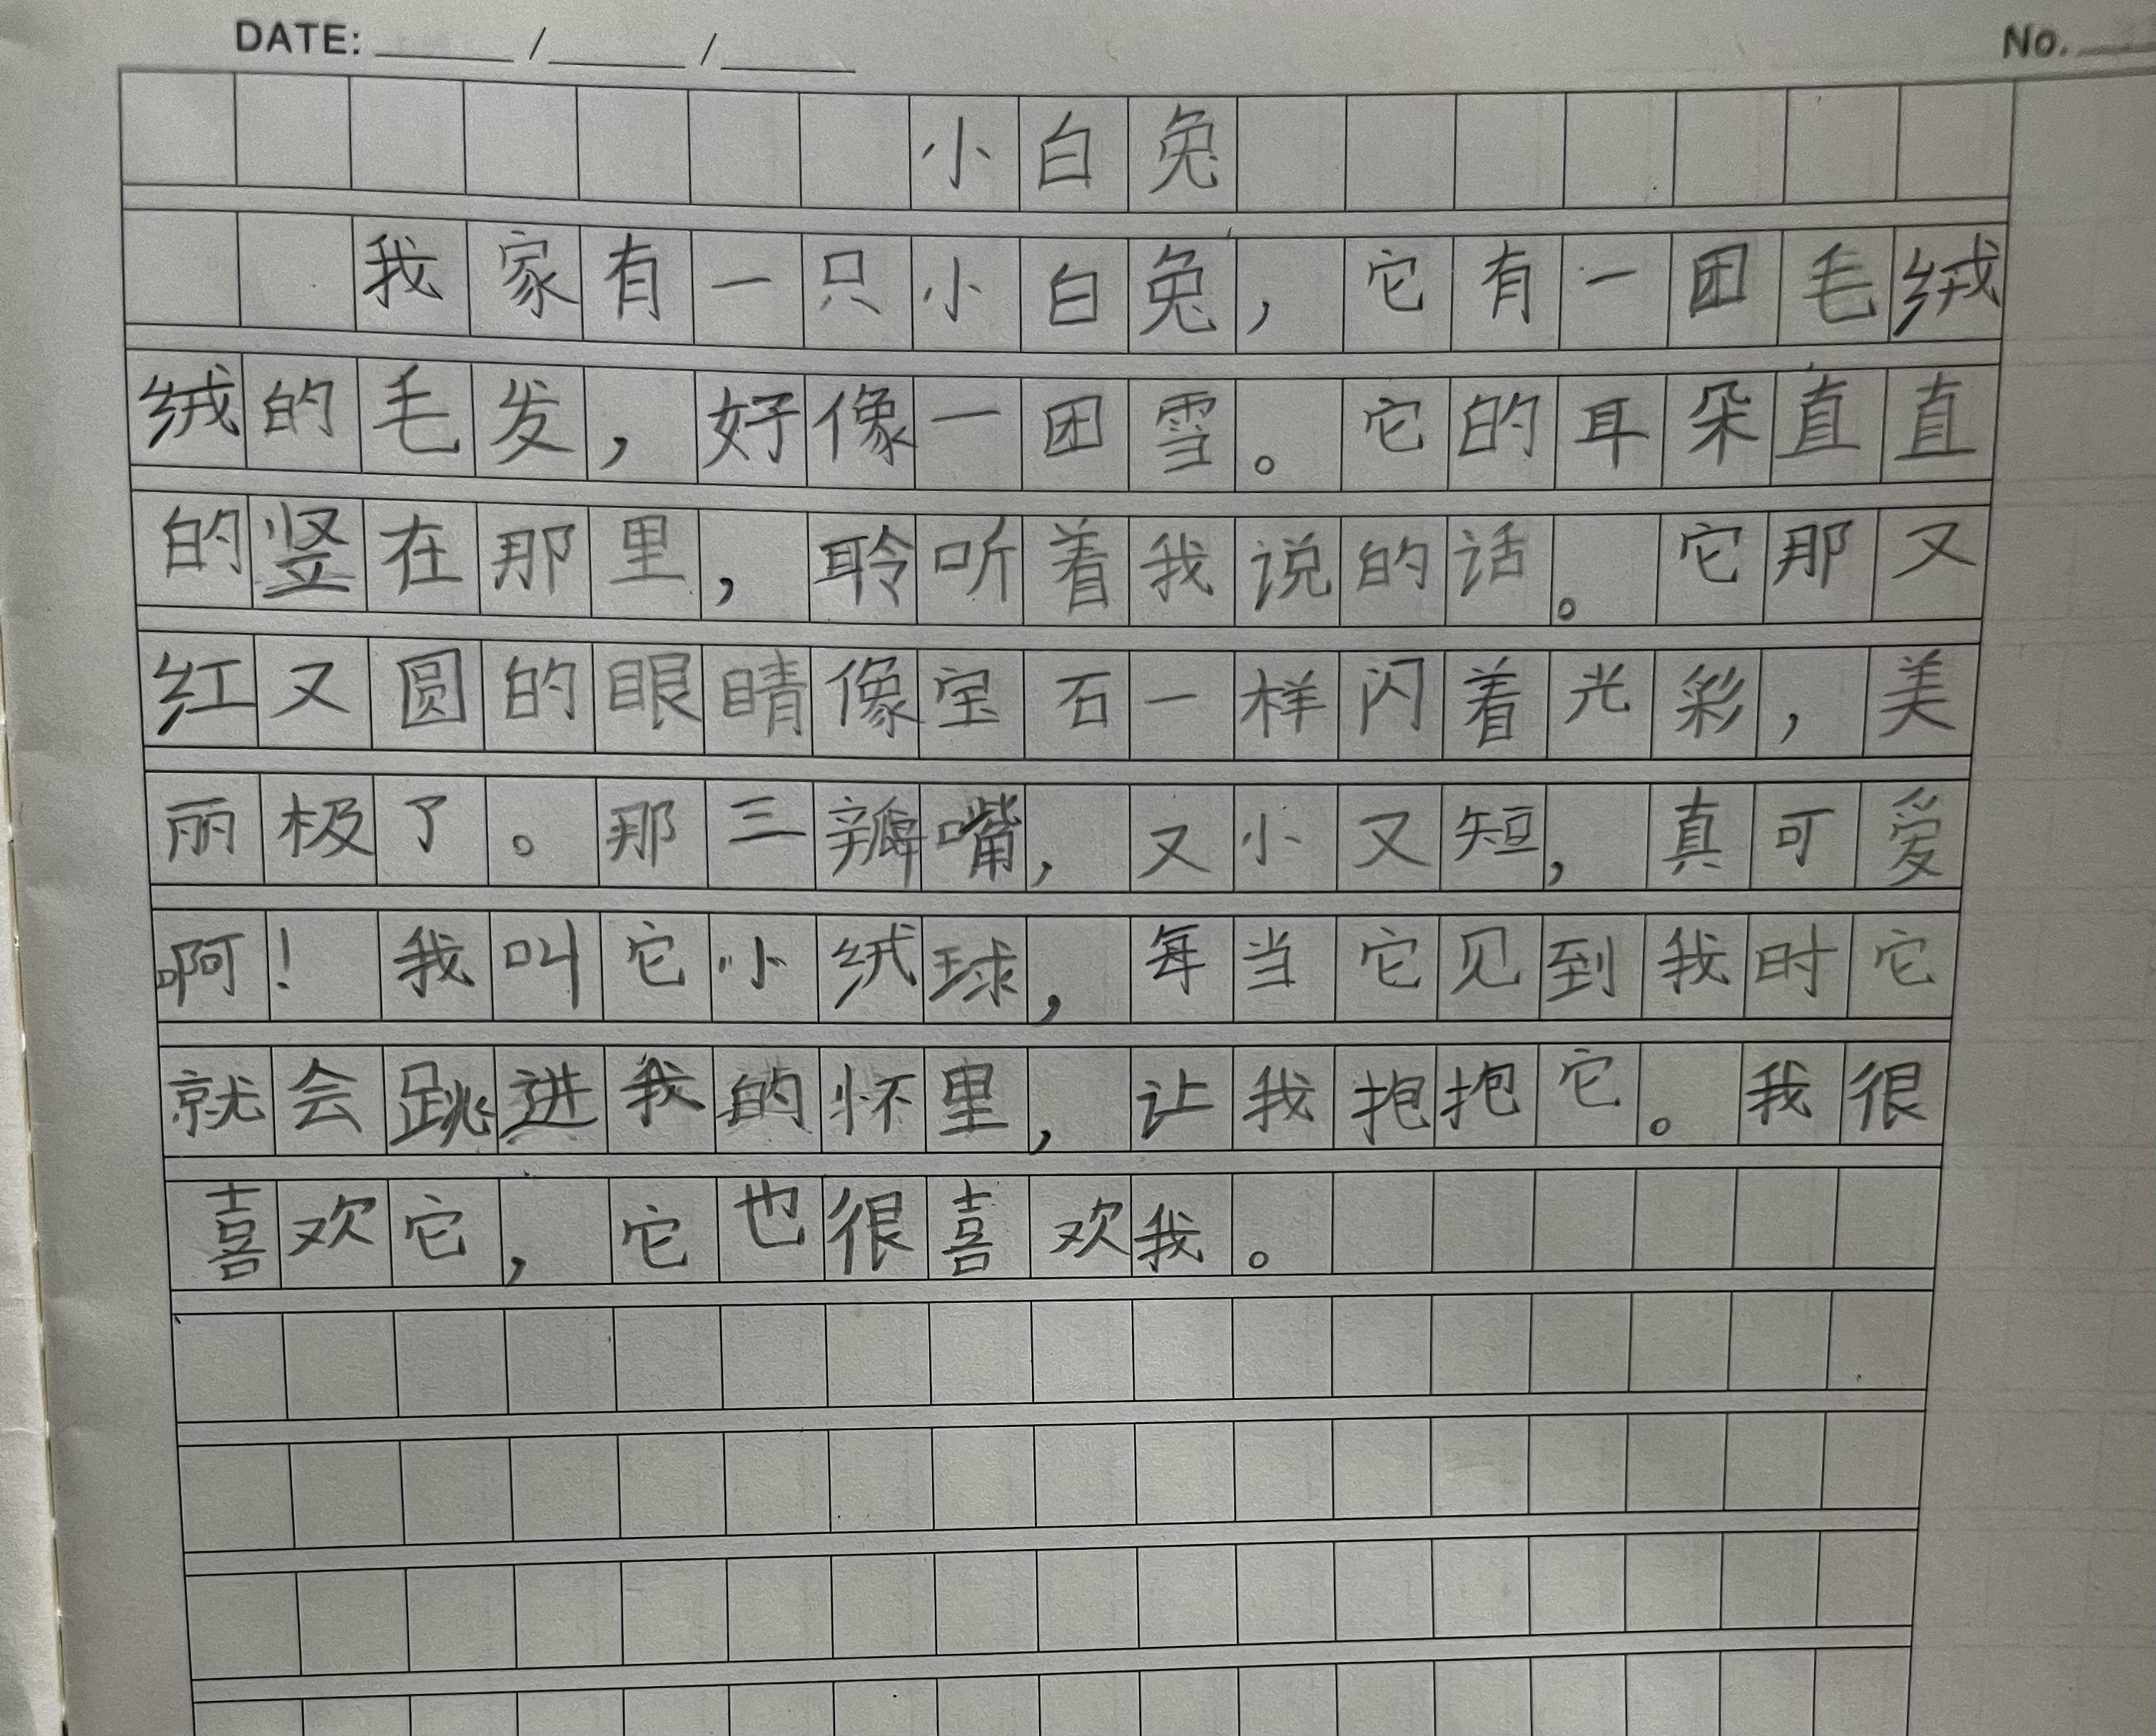 DATE: ____ / ____ / ____ No. ____
小白兔
我家有一只小白兔，它有一团毛绒
绒的毛发，好像一团雪。它的耳朵直直
的竖在那里，聆听着我说的话。它那又
红又圆的眼睛像宝石一样闪着光彩，美
丽极了。那三瓣嘴，又小又短，真可爱
啊！我叫它小绒球，每当它见到我时它
就会跳进我的怀里，让我抱抱它。我很
喜欢它，它也很喜欢我。